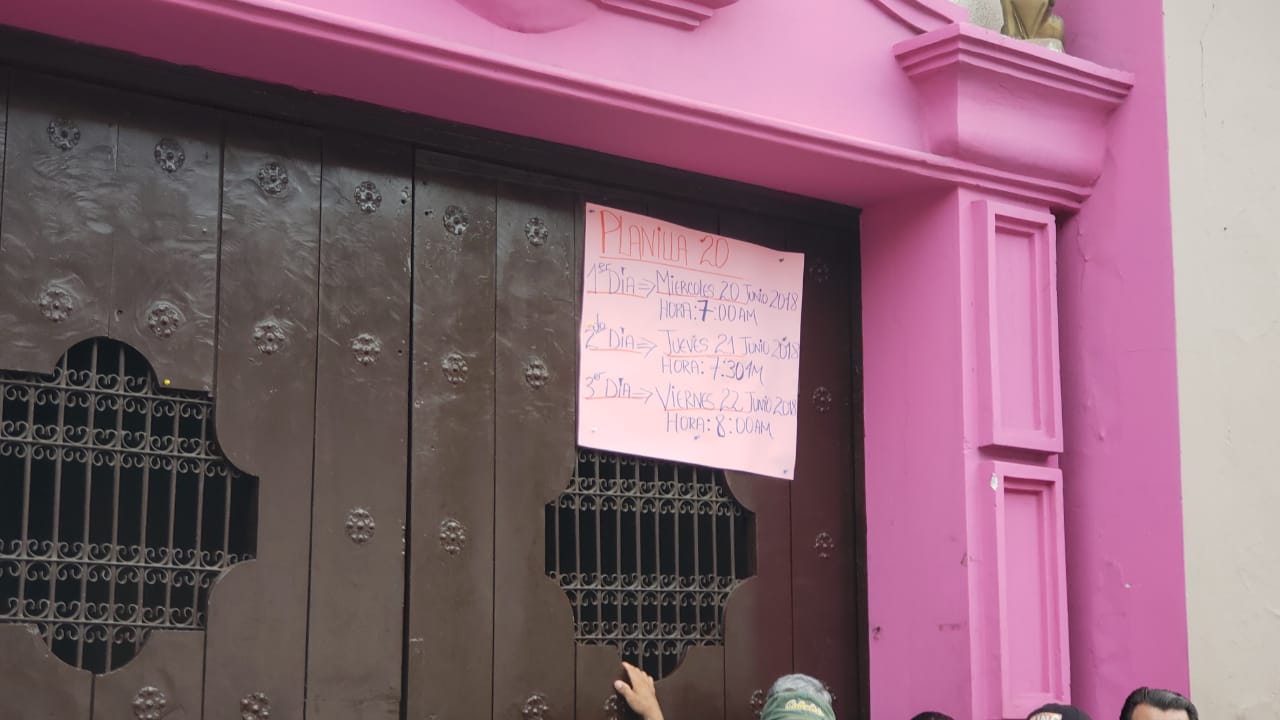 PLANILLA 20
1er DIA ⇒ MIERCOLES 20 JUNIO 2018
HORA: 7:00AM
2do DIA ⇒ JUEVES 21 JUNIO 2018
HORA: 7:30AM
3er DIA → VIERNES 22 JUNIO 2018
HORA: 8:00AM